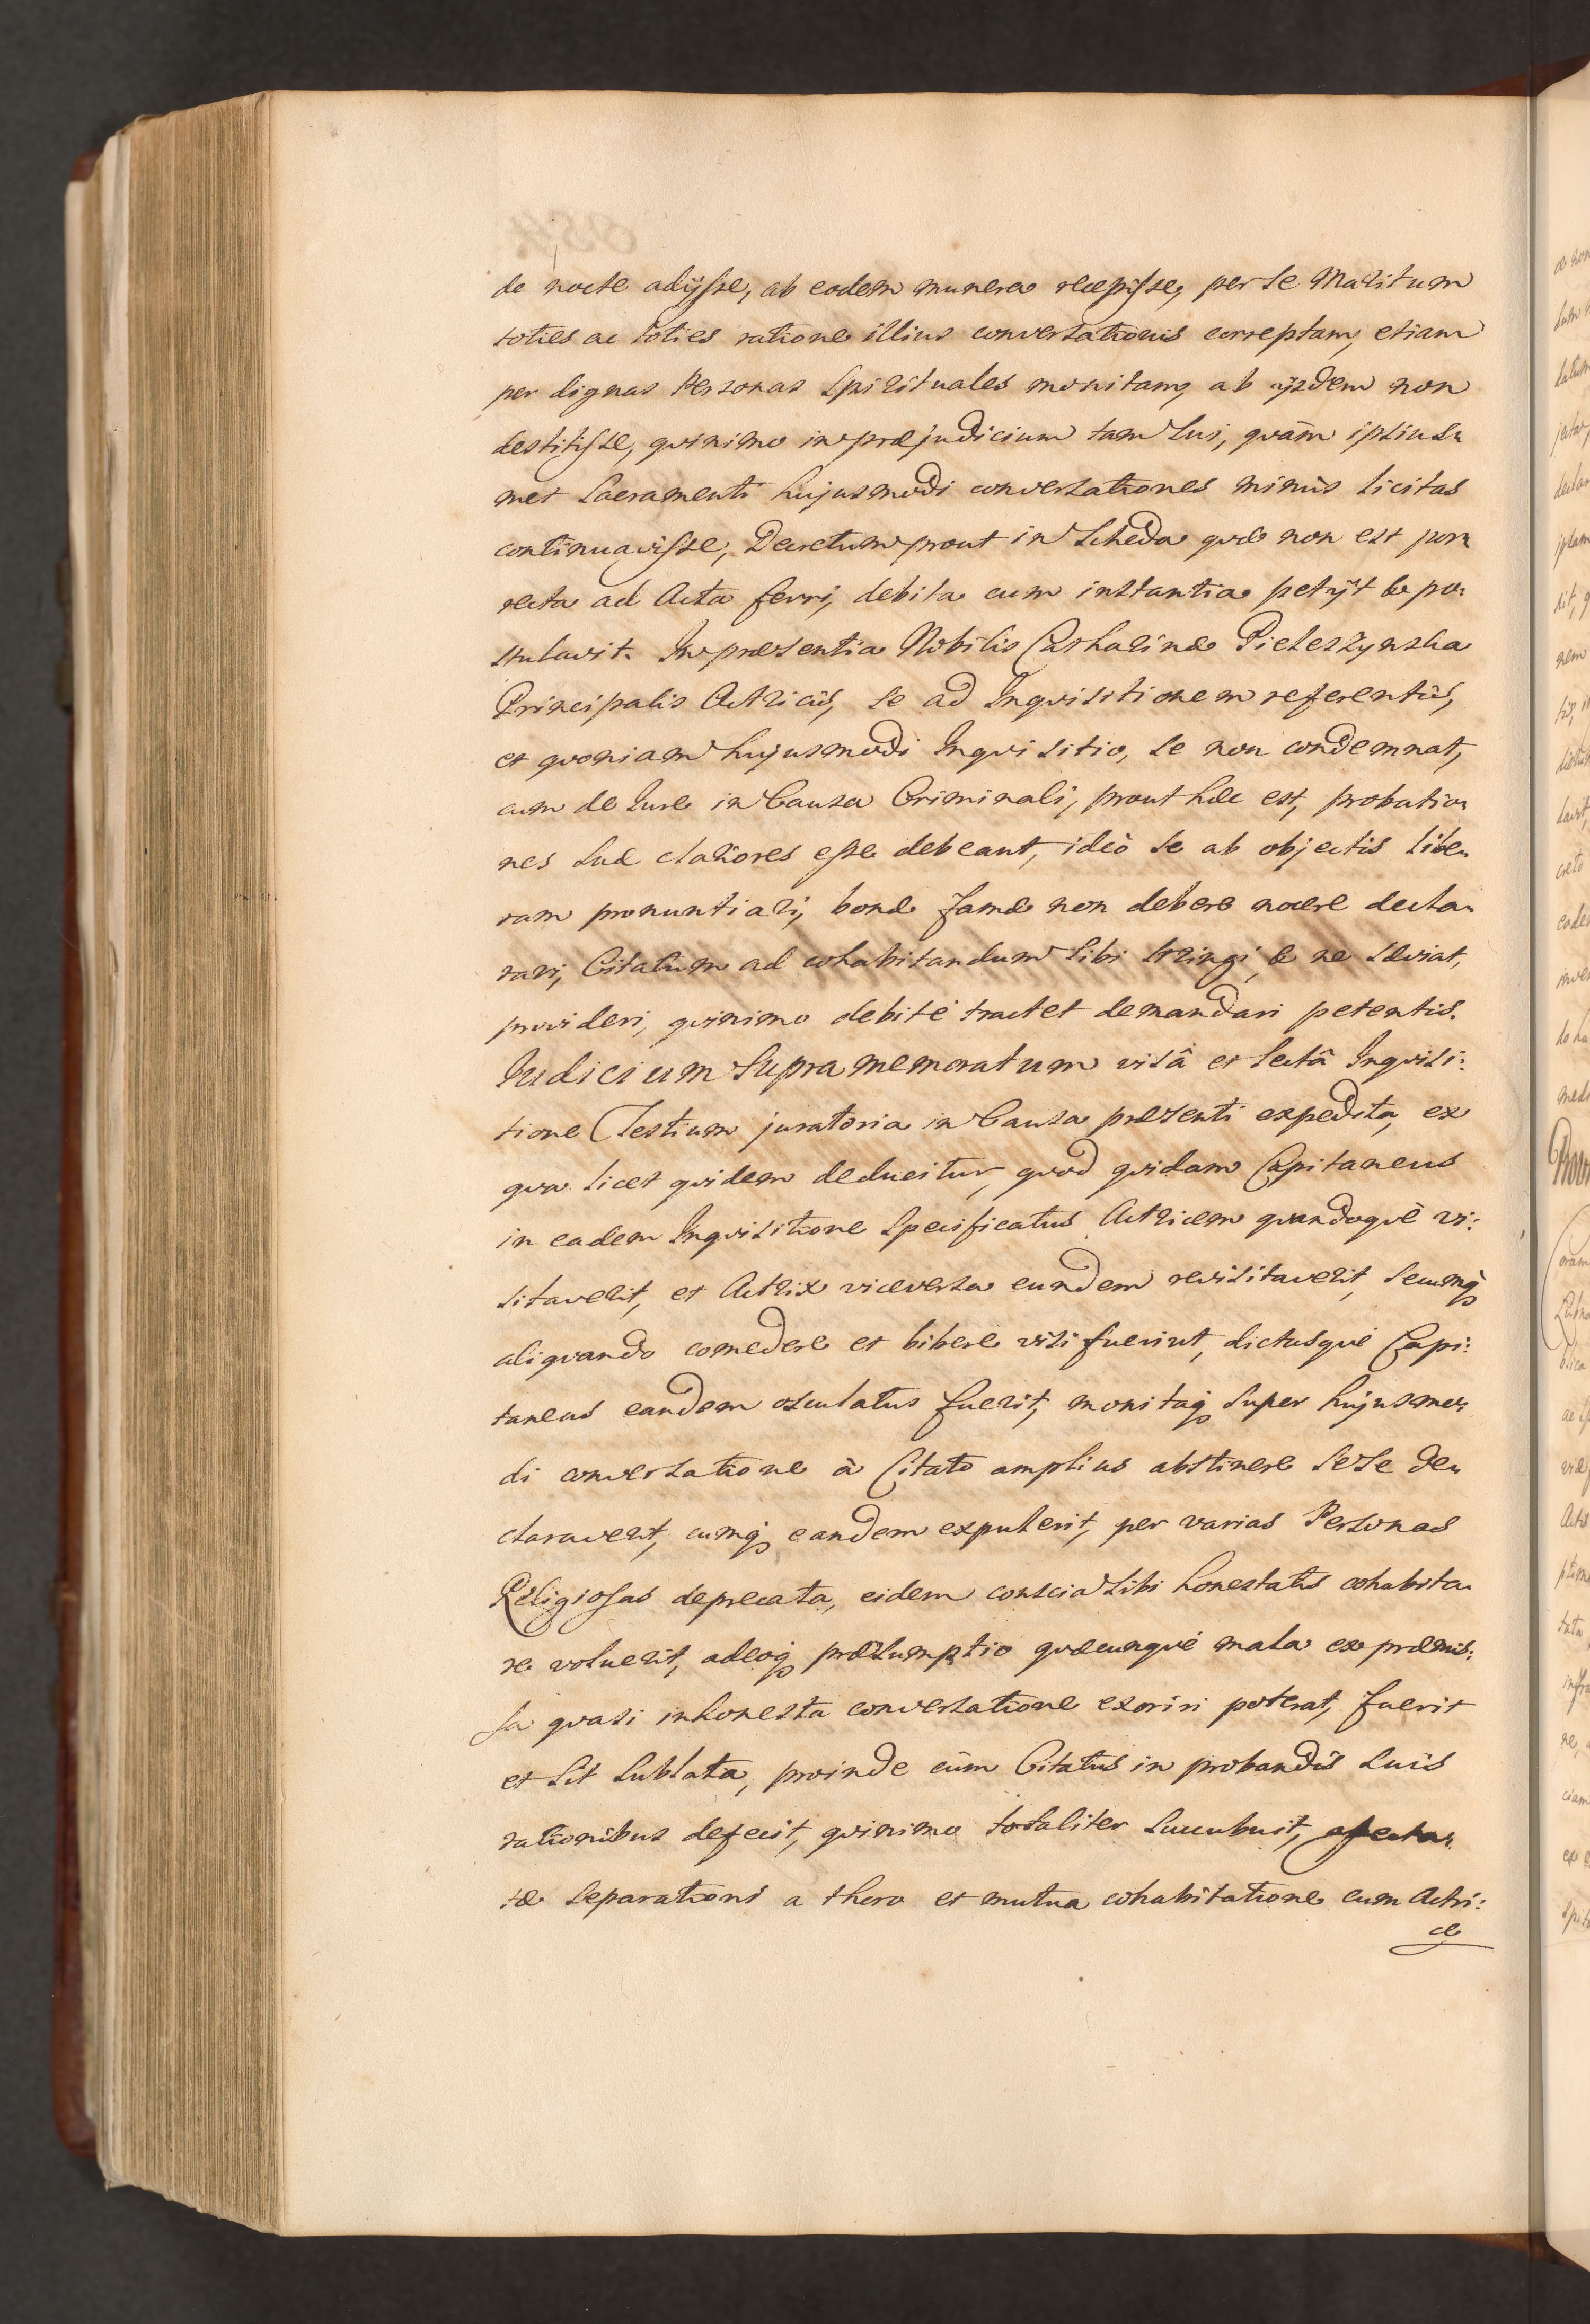 de nocte adijsse, ab eodem munera recepisse, per se Maritum
toties ac toties ratione illius conversationis correptam, etiam
per dignas Personas Spirituales monitam, ab ijsdem non
destitisse, quinimo in praejudicium tam sui, quam ipsius
met Sacramenti hujusmodi conversationes minus licitas
continuavisse, Decretum prout in Scheda quae non est por
recta ad Acta ferri, debita cum instantia petijt & po:
stulavit. In praesentia Nobilis Catharinae Pieleszynska
Principalis Actricis, se ad Inquisitionem referentis,
et quoniam hujusmodi Inquisitio, se non condemnat,
cum de Jure in Causa Criminali, prout haec est, probatio
nes suae clariores esse debeant, ideò se ab objectis libe
ram pronuntiari, bonae famae non debere nocere decla
rari, Citatum ad cohabitandum sibi stringi, & ne saeviat,
provideri, quinimo debité tractet demandari petentis.
Judicium Supra memoratum visâ et lectâ Inquisi:
tione Testium juratoria in Causa praesenti expedita, ex
qua licet quidem deducitur, quod quidam Capitaneus
in eadem Inquisitione Specificatus Actricem quandoquè vi:
sitaverit, et Actrix viceversa eundem revisitaverit, secumq
aliquando comedere et bibere visi fuerint, dictusquè Capi:
taneus eandem osculatus fuerit, monitaq super hujusmo
di conversatione à Citato amplius abstinere sese de
claraverit, cumq eandem expulerit, per varias Personas
Religiosas deprecata, eidem conscia sibi honestatis cohabita
re voluerit, adeoq praesumptio quaecunquè mala ex praemis:
sa quasi inhonesta conversatione exoriri poterat, fuerit
et sit sublata, proinde cùm Citatus in probandis suis
rationibus defecit, quinimo totaliter succubuit, affecta
tae Separationi a thoro et mutua cohabitatione cum Actri:
ce